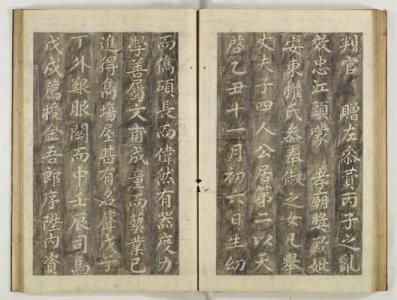 判官 贈左參贊丙子之亂
效忠江頭蒙 孝朝奬勤妣
安東權氏參奉俶之女凡舉
丈夫子四人公居第二以天
啓乙丑十一月初六日生幼
而儁碩長而偉然有器度力
學善屬文甫成童而藝業已
進得雋場屋甚有名聲戊子
丁外艱服闋而中壬辰司馬
戊戌薦授金吾郎序陞內資